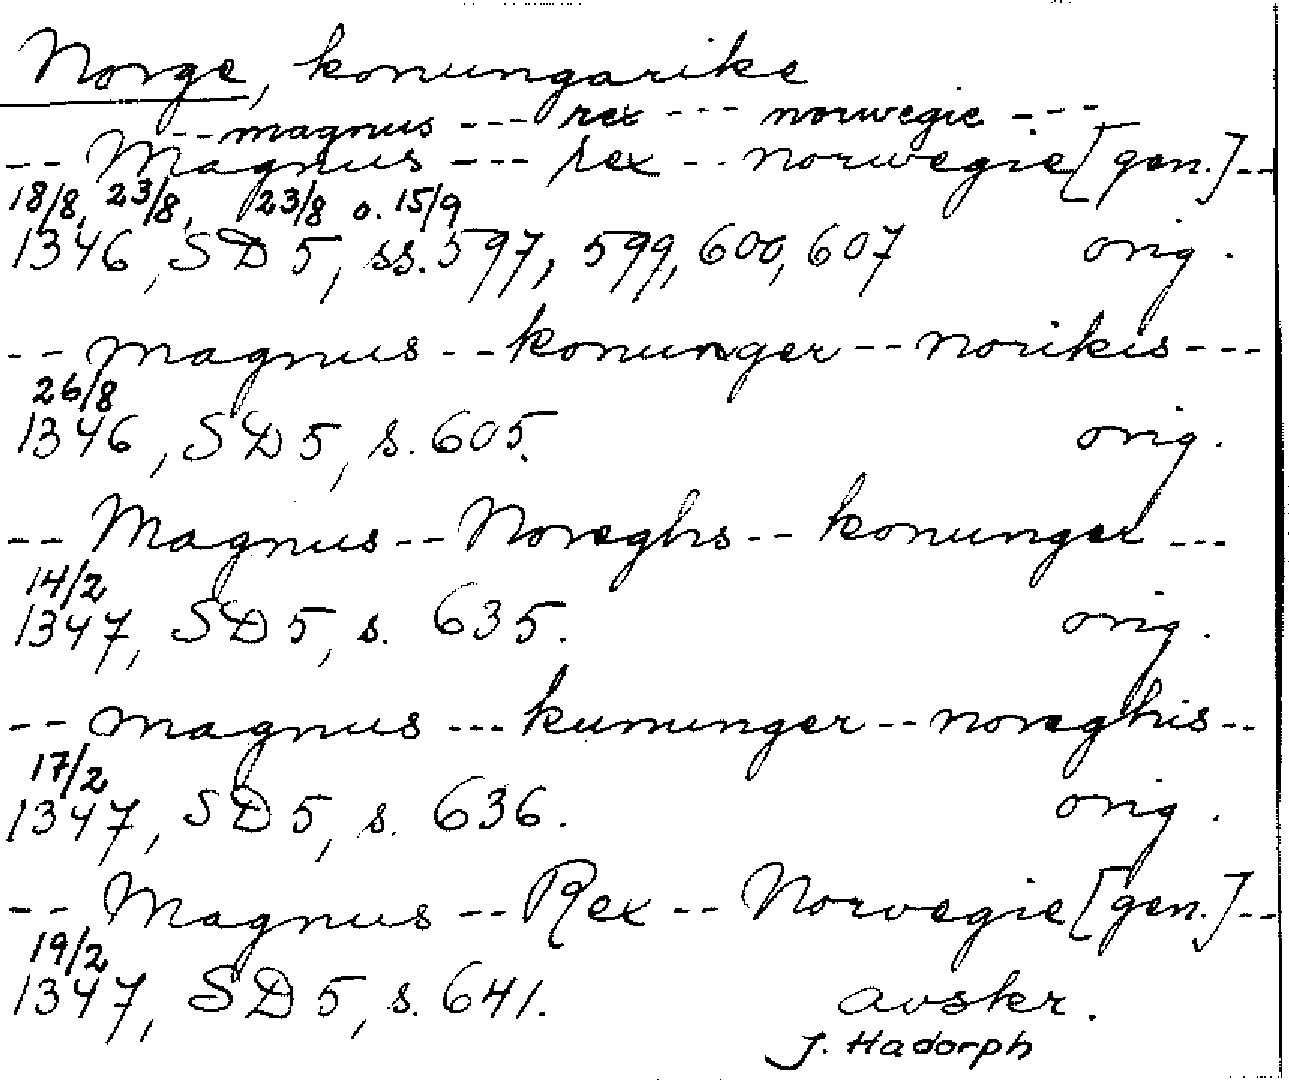 Norge, konungarike
-- magnus --- rex --- norwegie ---
-- Magnus --- rex -- norwegie [gen.] --
18/8, 23/8, 23/8 o. 15/9
1346, SD 5, ss. 597, 599, 600, 607 orig.
-- magnus -- konunger -- norikis ---
26/8
1346, SD 5, s. 605. orig.
-- Magnus -- Noreghs -- konunger ---
14/2
1347, SD 5, s. 635. orig.
-- magnus --- kununger -- noreghis --
17/2
1347, SD 5, s. 636. orig.
-- Magnus -- Rex -- Norvegie [gen.] --
19/2
1347, SD 5, s. 641. avskr.
J. Hadorph